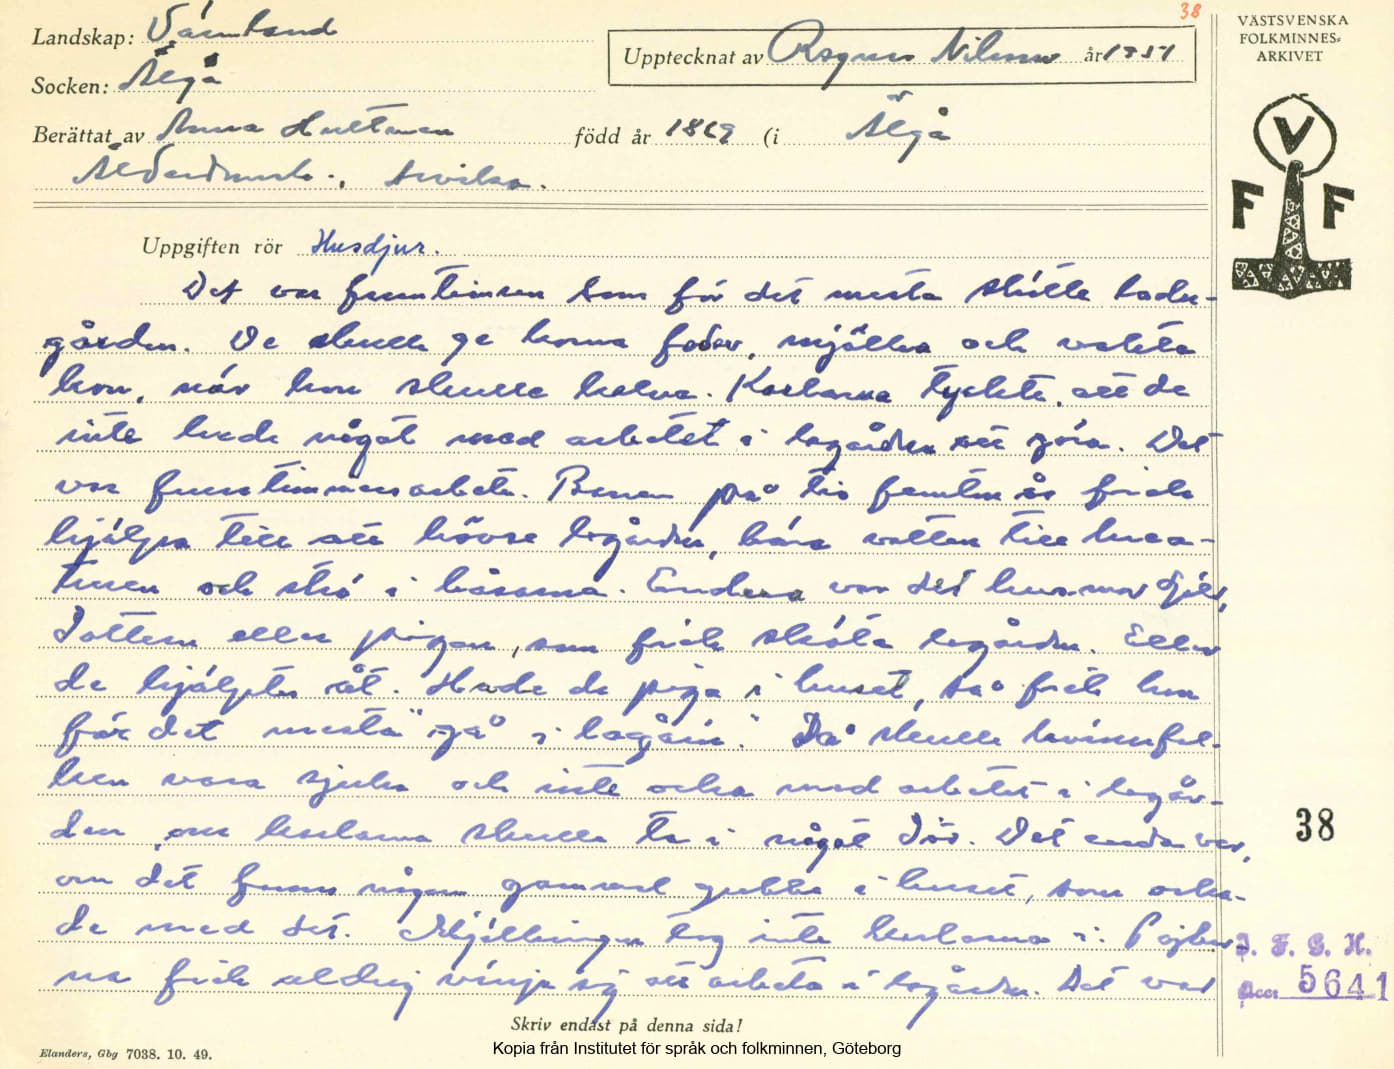 38
Landskap: Värmland
Socken: Älgå
Upptecknat av Ragnar Nilsson år 1951
Berättat av Anna Hultman född år 1869 (i Älgå
Ålderdomsh., Arvika.
VÄSTSVENSKA
FOLKMINNES-
ARKIVET
V
F F
Uppgiften rör Husdjur.
Det var fruntimren som för det mesta skötte ladu-
gården. De skulle ge korna foder, mjölka och vakta
kon, när hon skulle kalva. Karlarna tyckte, att de
inte hade något med arbetet i lagården att göra. Det
var fruntimmersarbete. Barnen på tio femton år fick
hjälpa till att hövse lagården, bära vatten till krea-
turen och strö i båsarna. Endera var det husmor själv,
dottern eller pigan, som fick sköta lagården. Eller
de hjälptes åt. Hade de piga i huset, så fick hon
för det mesta "gå i lagårn." Då skulle kvinnfol-
ken vara sjuka och inte orka med arbetet i lagår-
den, om karlarna skulle ta i något där. Det enda var,
om det fanns någon gammal gubbe i huset, som orka-
de med det. Mjölkningen tog inte karlarna i. Pojkar-
na fick aldrig vänja sig att arbeta i lagården. Det var
38
I. F. G. H.
Acc: 5641
Skriv endast på denna sida!
Elanders, Gbg 7038. 10. 49.
Kopia från Institutet för språk och folkminnen, Göteborg